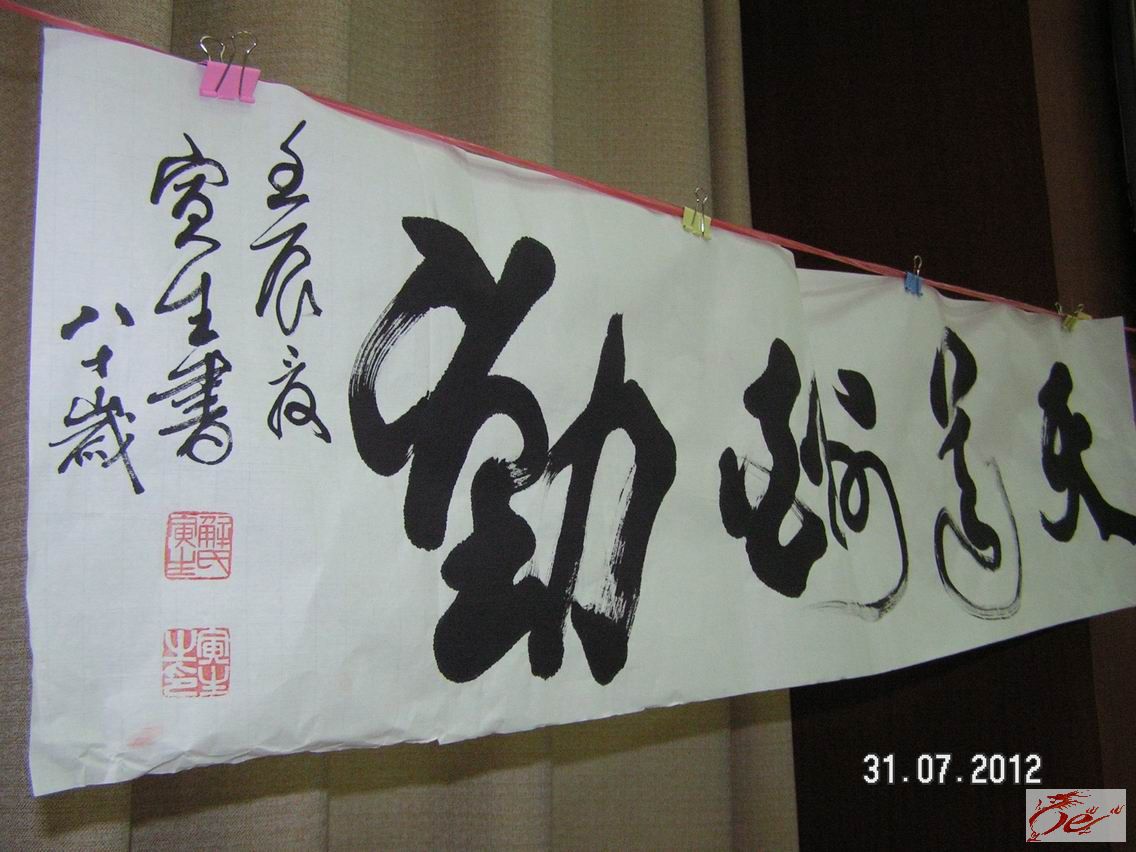 天道酬勤
壬辰夏
寅生書
八十歲
解氏寅生
31.07.2012